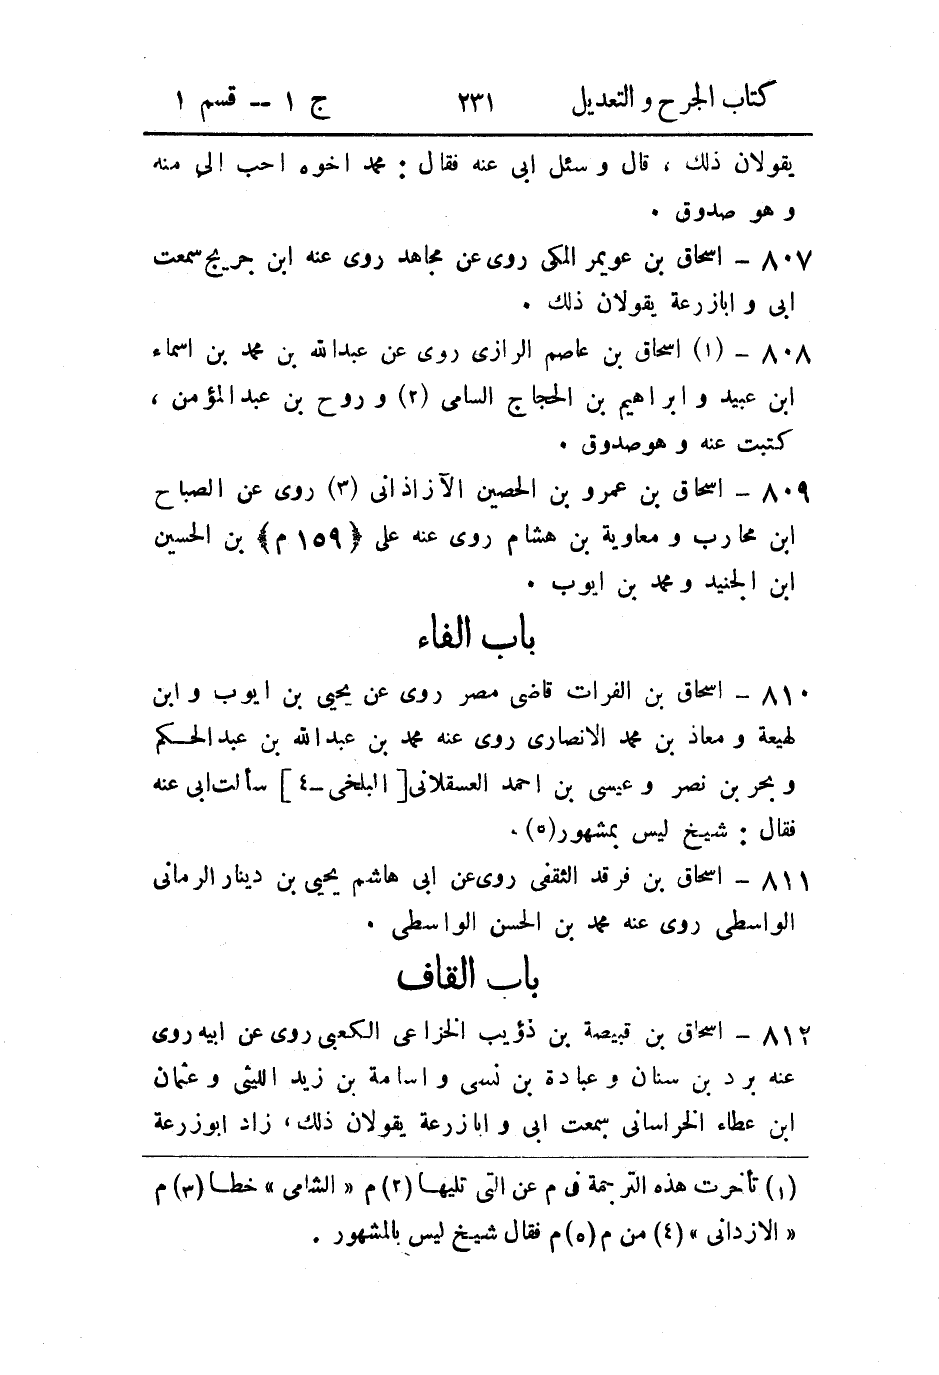 كتاب الجرح و التعديل ٢٣١ ج ١ -- قسم ١
يقولان ذلك ، قال و سئل ابى عنه فقال : محمد اخوه احب الى منه
و هو صدوق .
٨٠٧ - اسحاق بن عويمر المكى روى عن مجاهد روى عنه ابن جريج سمعت
ابى و ابازرعة يقولان ذلك .
٨٠٨ - (١) اسحاق بن عاصم الرازى روى عن عبدالله بن محمد بن اسماء
ابن عبيد و ابراهيم بن الحجاج السامى (٢) و روح بن عبد المؤمن ،
كتبت عنه و هو صدوق .
٨٠٩ - اسحاق بن عمرو بن الحصين الآزاذانى (٣) روى عن الصباح
ابن محارب و معاوية بن هشام روى عنه على ﴿١٥٩ م﴾ بن الحسين
ابن الجنيد و محمد بن ايوب .
باب الفاء
٨١٠ - اسحاق بن الفرات قاضى مصر روى عن يحيى بن ايوب و ابن
لهيعة و معاذ بن محمد الانصارى روى عنه محمد بن عبدالله بن عبد الحكم
و بحر بن نصر و عيسى بن احمد العسقلانى [ البلخى -٤ ] سألت ابى عنه
فقال : شيخ ليس بمشهور(٥) .
٨١١ - اسحاق بن فرقد الثقفى روى عن ابى هاشم يحيى بن دينار الرمانى
الواسطى روى عنه محمد بن الحسن الواسطى .
باب القاف
٨١٢ - اسحاق بن قبيصة بن ذؤيب الخزاعى الكعبى روى عن ابيه روى
عنه برد بن سنان و عبادة بن نسى و اسامة بن زيد الليثى و عثمان
ابن عطاء الخراسانى سمعت ابى و ابازرعة يقولان ذلك ، زاد ابوزرعة
(١) تأخرت هذه الترجمة فى م عن التى تليها (٢) م « الشامى » خطا (٣) م
« الازدانى » (٤) من م (٥) م فقال شيخ ليس بالمشهور .